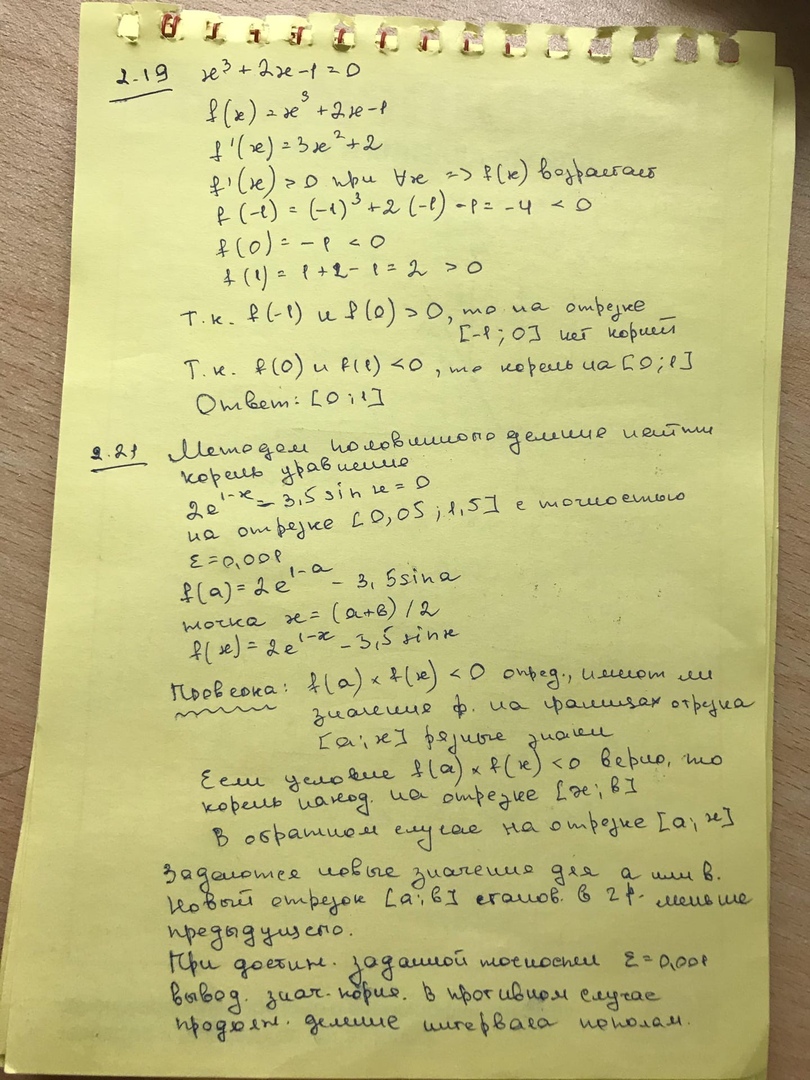 2.19 x³ + 2x - 1 = 0
f(x) = x³ + 2x - 1
f'(x) = 3x² + 2
f'(x) > 0 при ∀x => f(x) возрастает
f(-1) = (-1)³ + 2(-1) - 1 = -4 < 0
f(0) = -1 < 0
f(1) = 1 + 2 - 1 = 2 > 0
Т.к. f(-1) и f(0) > 0, то на отрезке
[-1; 0] нет корней
Т.к. f(0) и f(1) < 0, то корень на [0; 1]
Ответ: [0; 1]
2.21 Методом половинного деление найти
корень уравнение
2e^(1-x) - 3,5 sin x = 0
на отрезке [0,05; 1,5] с точностью
ε = 0,001
f(a) = 2e^(1-a) - 3,5 sin a
точка x = (a+в) / 2
f(x) = 2e^(1-x) - 3,5 sin x
Проверка: f(a) × f(x) < 0 опред., имеют ли
значение ф. на границах отрезка
[a; x] разные знаки
Если условие f(a) × f(x) < 0 верно, то
корень наход. на отрезке [x; в]
В обратном случае на отрезке [a; x]
Задаются новые значение для a или в.
Новый отрезок [a; в] станов. в 2 р. меньше
предыдущего.
При достиж. заданной точности ε = 0,001
вывод. знач. корня. В противном случае
продолж. деление интервала пополам.